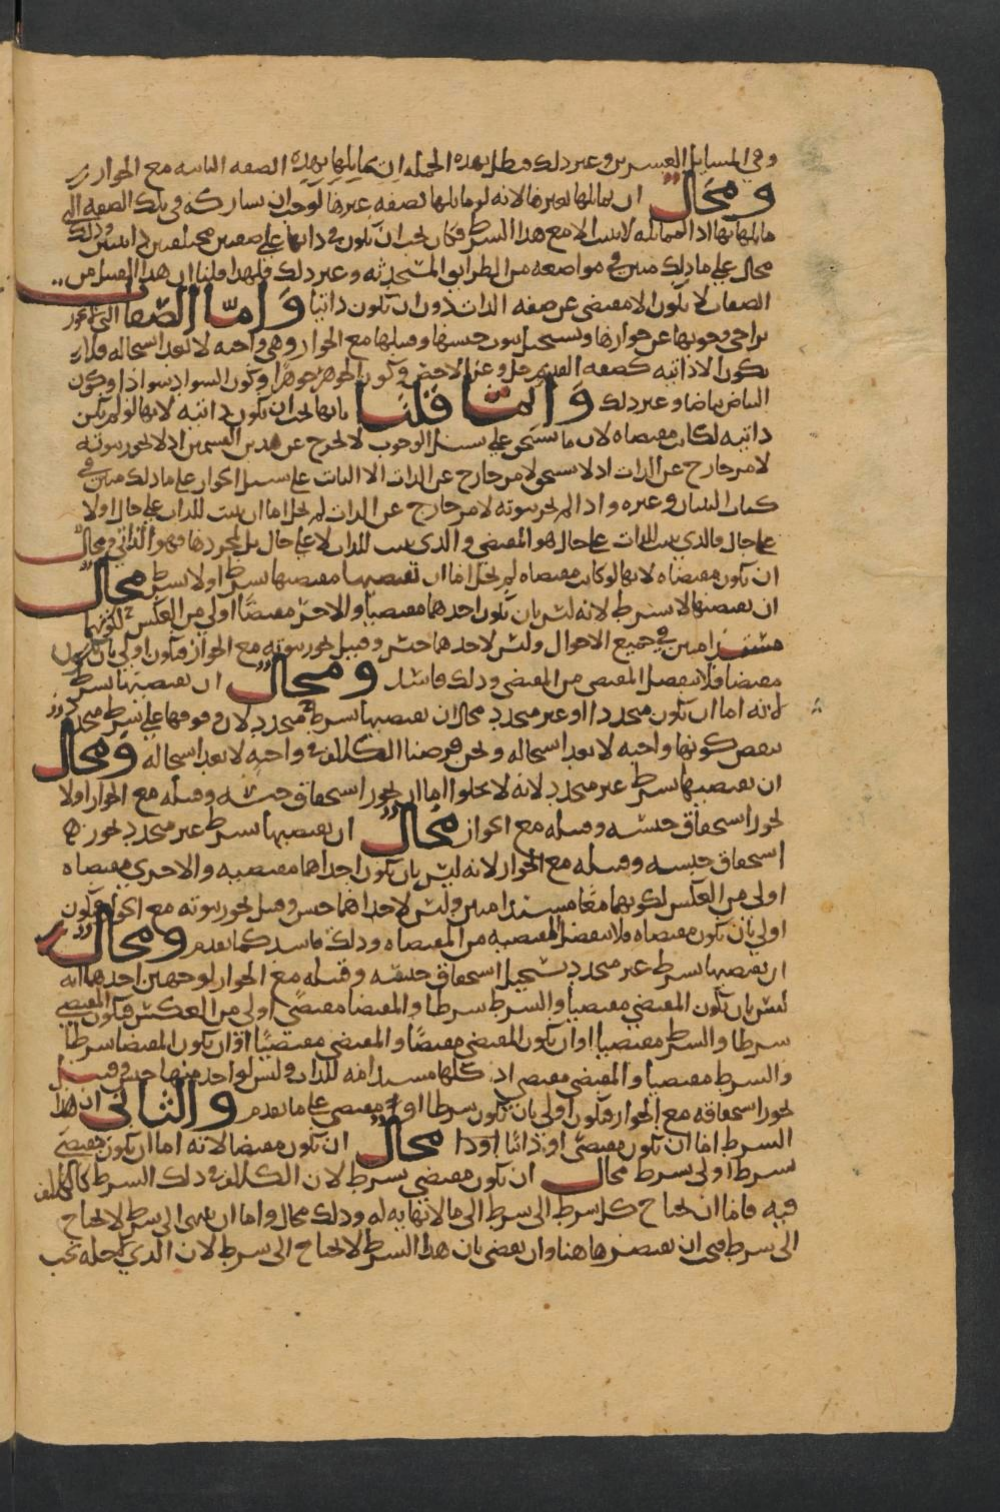 وفي المسايل العسرين وعير دلك فبطل بهده الجمله ان يماثلها بهده الصفه الثابته مع الجواز
ومحال ان يماثلها بغيرها لانه لو ماثلها بصفه غيرها لوجب ان تشاركه في تلك الصفه التي
ماثلها بها اذ المماثله لا تثبت الا مع هذا الشرط فكان يجب ان تكون في ذاتها على صفتين مختلفتين وذلك
محال على ما ذلك مبين في مواضعه من الطرايق المتحدثه وغير ذلك فلهذا قلنا ان هذا القبيل من
الصفات لا يكون الا مقتضى عن صفه الذات دون ان تكون ذاتيا وامّا الصفات التي لا يجوز
تراخي وجوبها عن جوازها ويستحيل ثبوت جنسها وقبيلها مع الجواز وهي واجبه لا بعد استحاله فلا
يكون الا ذاتيه كصفه القديم جل وعز الاخص وكون الجوهر جوهرا وكون السواد سوادا وكون
البياض بياضا وغير ذلك وانما قلنا بانها يجب ان تكون ذاتيه لانها لو لم تكن
ذاتيه لكانت مقتضاه لان ما يستحق على سبيل الوجوب لا يخرج عن هذين القسمين اذ لا يجوز ثبوته
لامر خارج عن الذات اذ لا يستحق لامر خارج عن الذات الا الثابت على سبيل الجواز على ما ذلك مبين في
كتاب التبيان وغيره واذا لم يجز ثبوته لامر خارج عن الذات لم يخل اما ان يثبت للذات على حال او لا
على حال فالذي يثبت للذات على حال هو المقتضى والذي يثبت للذات لا على حال بل لمجردها فهو الذاتي ومحال
ان تكون مقتضاه لانها لو كانت مقتضاه لم يخل اما ان تقتضيها مقتضيها بشرط او لا بشرط محال
ان يقتضيها لا بشرط لانه ليس بان يكون احدهما مقتضيا والاخر مقتضا اولى من العكس لكونهما
مستدامين في جميع الاحوال وليس لاحدهما جنس وقبيل يجوز ثبوته مع الجواز فيكون اولى بان يكون
مقتضا فلا ينفصل المقتضي من المقتضى وذلك فاسد ومحال ان يقتضيها بشرط
لانه اما ان يكون متجددا او غير متجدد محال ان يقتضيها بشرط متجدد لان وقوفها على شرط متجدد
ينقض كونها واجبه لا بعد استحاله ونحن فرضنا الكلام في واجبه لا بعد استحاله ومحال
ان يقتضيها بشرط غير متجدد لانه لا يخلوا اما ان يجوز استحقاق جنسه وقبيله مع الجواز او لا
يجوز استحقاق جنسه وقبيله مع الجواز محال ان يقتضيها بشرط غير متجدد يجوز
استحقاق جنسه وقبيله مع الجواز لانه ليس بان يكون احداهما مقتضيه والاخرى مقتضاه
اولى من العكس لكونهما معا مستدامين وليس لاحداهما جنس وقبيل يجوز ثبوته مع الجواز فيكون
اولى بان تكون مقتضاه فلا ينفصل المقتضيه من المقتضاه وذلك فاسد كما تقدم ومحال
ان يقتضيها بشرط غير متجدد يستحيل استحقاق جنسه وقبيله مع الجواز لوجهين احدهما انه
ليس بان يكون المقتضي مقتضيا والشرط شرطا والمقتضا مقتضى اولى من العكس فيكون المقتضي
شرطا والشرط مقتضيا او ان يكون المقتضي مقتضا والمقتضى مقتضيا او ان يكون المقتضا شرطا
والشرط مقتضيا والمقتضي مقتضى اذ كلها مستدامه للذات وليس لواحد منها جنس وقبيل
يجوز استحقاقه مع الجواز فيكون اولى بان يكون شرطا او مقتضى على ما تقدم والثاني ان هذا
الشرط اما ان يكون مقتضى او ذاتا او ذا محال ان يكون مقتضا لانه اما ان يكون مقتضى
بشرط او لا بشرط محال ان يكون مقتضى بشرط لان الكلام في ذلك الشرط كالكلام
فيه فاما ان يحتاج كل شرط الى شرط الى ما لا نهايه له وذلك محال واما ان ينتهي الى شرط لا يحتاج
الى شرط فيجب ان نقتصر هاهنا وان يقضى بان هذا الشرط لا يحتاج الى شرط لان الذي لاجله يجب